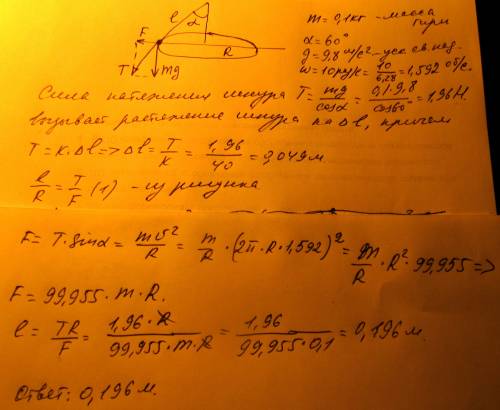 m = 0,1кг - масса гири
α = 60°
g = 9,8 м/с² - уск. св. пад.
ω = 10 рад/с = 10/6,28 = 1,592 об/с.
F l α R
T mg
Сила натяжения шнура T = mg/cosα = 0,1·9,8/cos60° = 1,96 Н.
вызывает растяжение шнура на Δl, причем
T = K·Δl => Δl = T/K = 1,96/40 = 0,049 м.
l/R = T/F (1) - из рисунка
F = T·sinα = mυ²/R = m/R · (2π·R·1,592)² = m/R · R²·99,955 =>
F = 99,955·m·R.
l = TR/F = 1,96·R/99,955·m·R = 1,96/99,955·0,1 = 0,196 м
Ответ: 0,196 м.